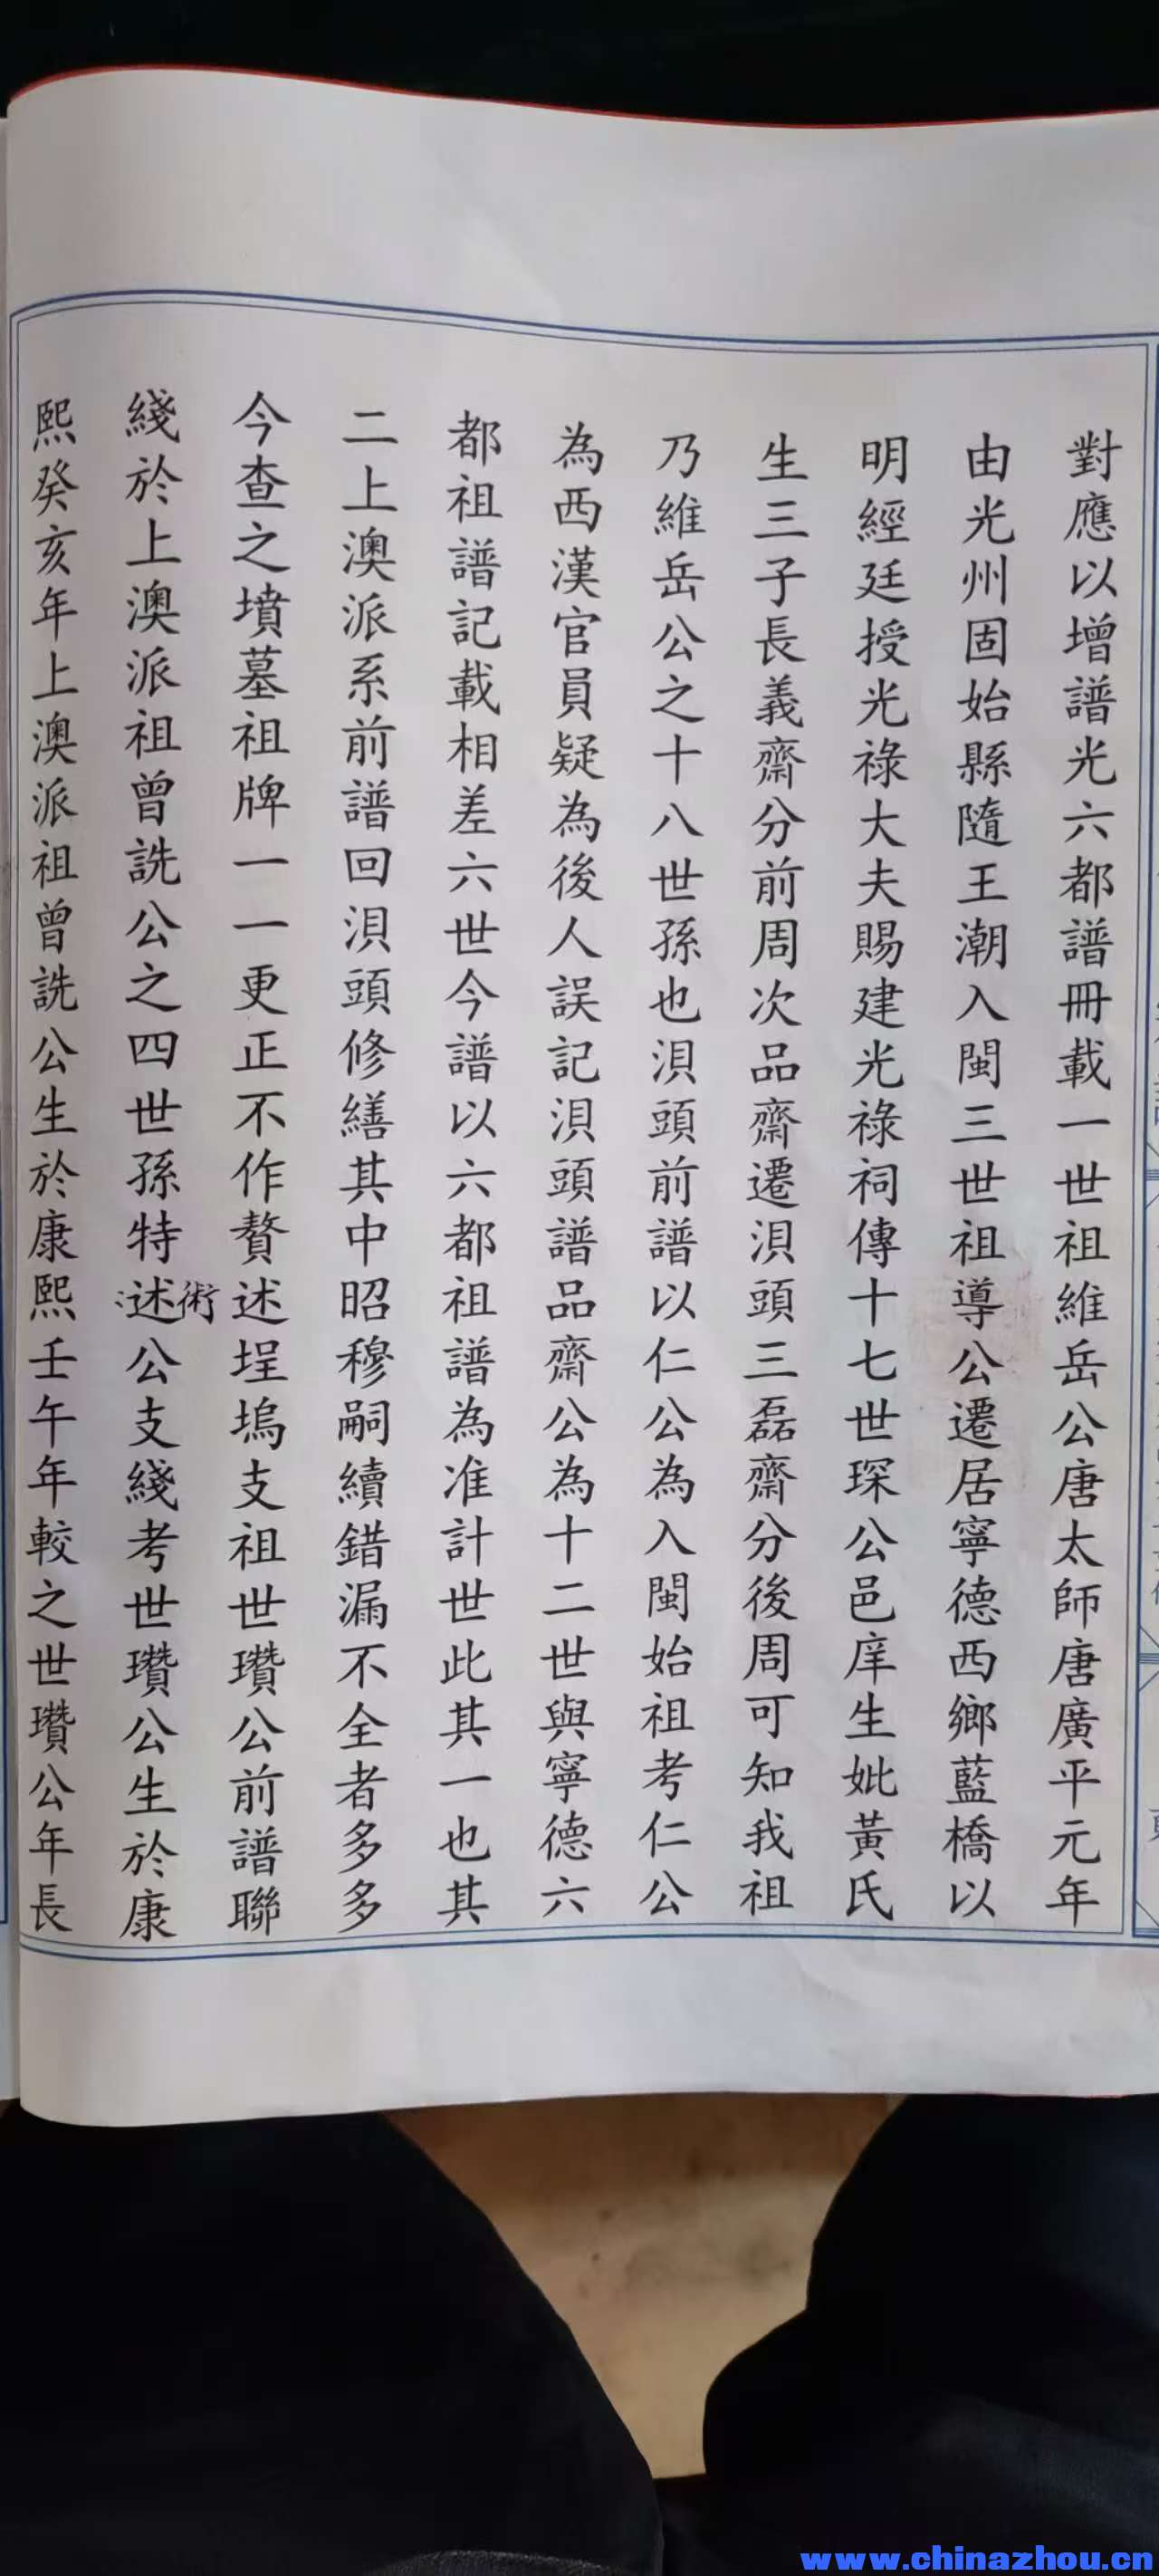 對應以增譜光六都譜冊載一世祖維岳公唐太師唐廣平元年
由光州固始縣隨王潮入閩三世祖導公遷居寧德西鄉藍橋以
明經廷授光祿大夫賜建光祿祠傳十七世琛公邑庠生妣黃氏
生三子長義齋分前周次品齋遷浿頭三磊齋分後周可知我祖
乃維岳公之十八世孫也浿頭前譜以仁公為入閩始祖考仁公
為西漢官員疑為後人誤記浿頭譜品齋公為十二世與寧德六
都祖譜記載相差六世今譜以六都祖譜為准計世此其一也其
二上澳派系前譜回浿頭修繕其中昭穆嗣續錯漏不全者多多
今查之墳墓祖牌一一更正不作贅述埕塢支祖世瓚公前譜聯
綫於上澳派祖曾詵公之四世孫特述術公支綫考世瓚公生於康
熙癸亥年上澳派祖曾詵公生於康熙壬午年較之世瓚公年長
www.chinazhou.cn